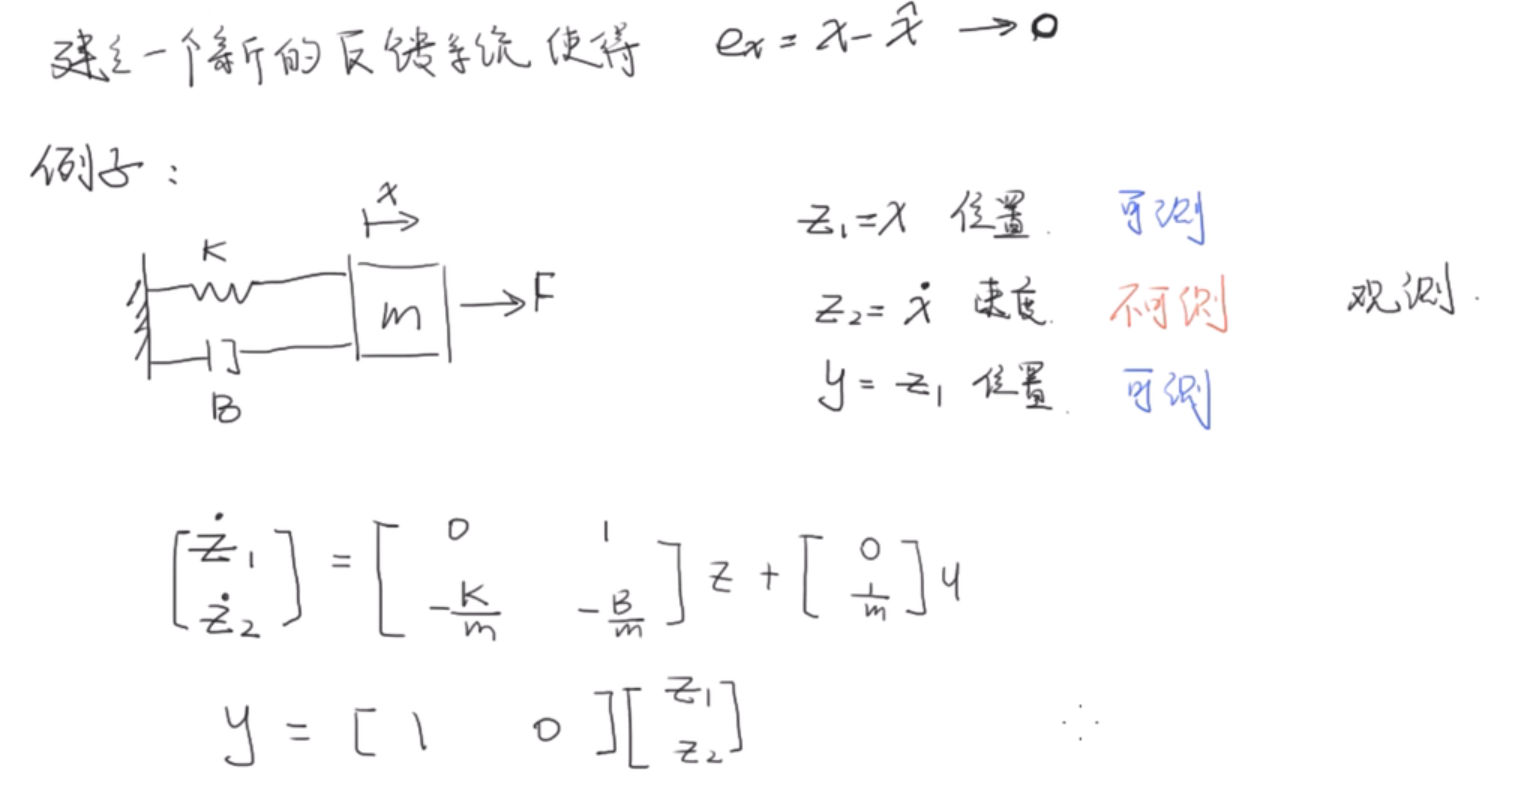 建立一个新的反馈系统 使得 eₓ = x - x̂ → 0
例子：
x
K
m
F
B
z₁ = x 位置. 可测
z₂ = ẋ 速度. 不可测 观测.
y = z₁ 位置. 可测
[ż₁ ż₂] = [0 1 -K/m -B/m] z + [0 1/m] u
y = [1 0] [z₁ z₂]